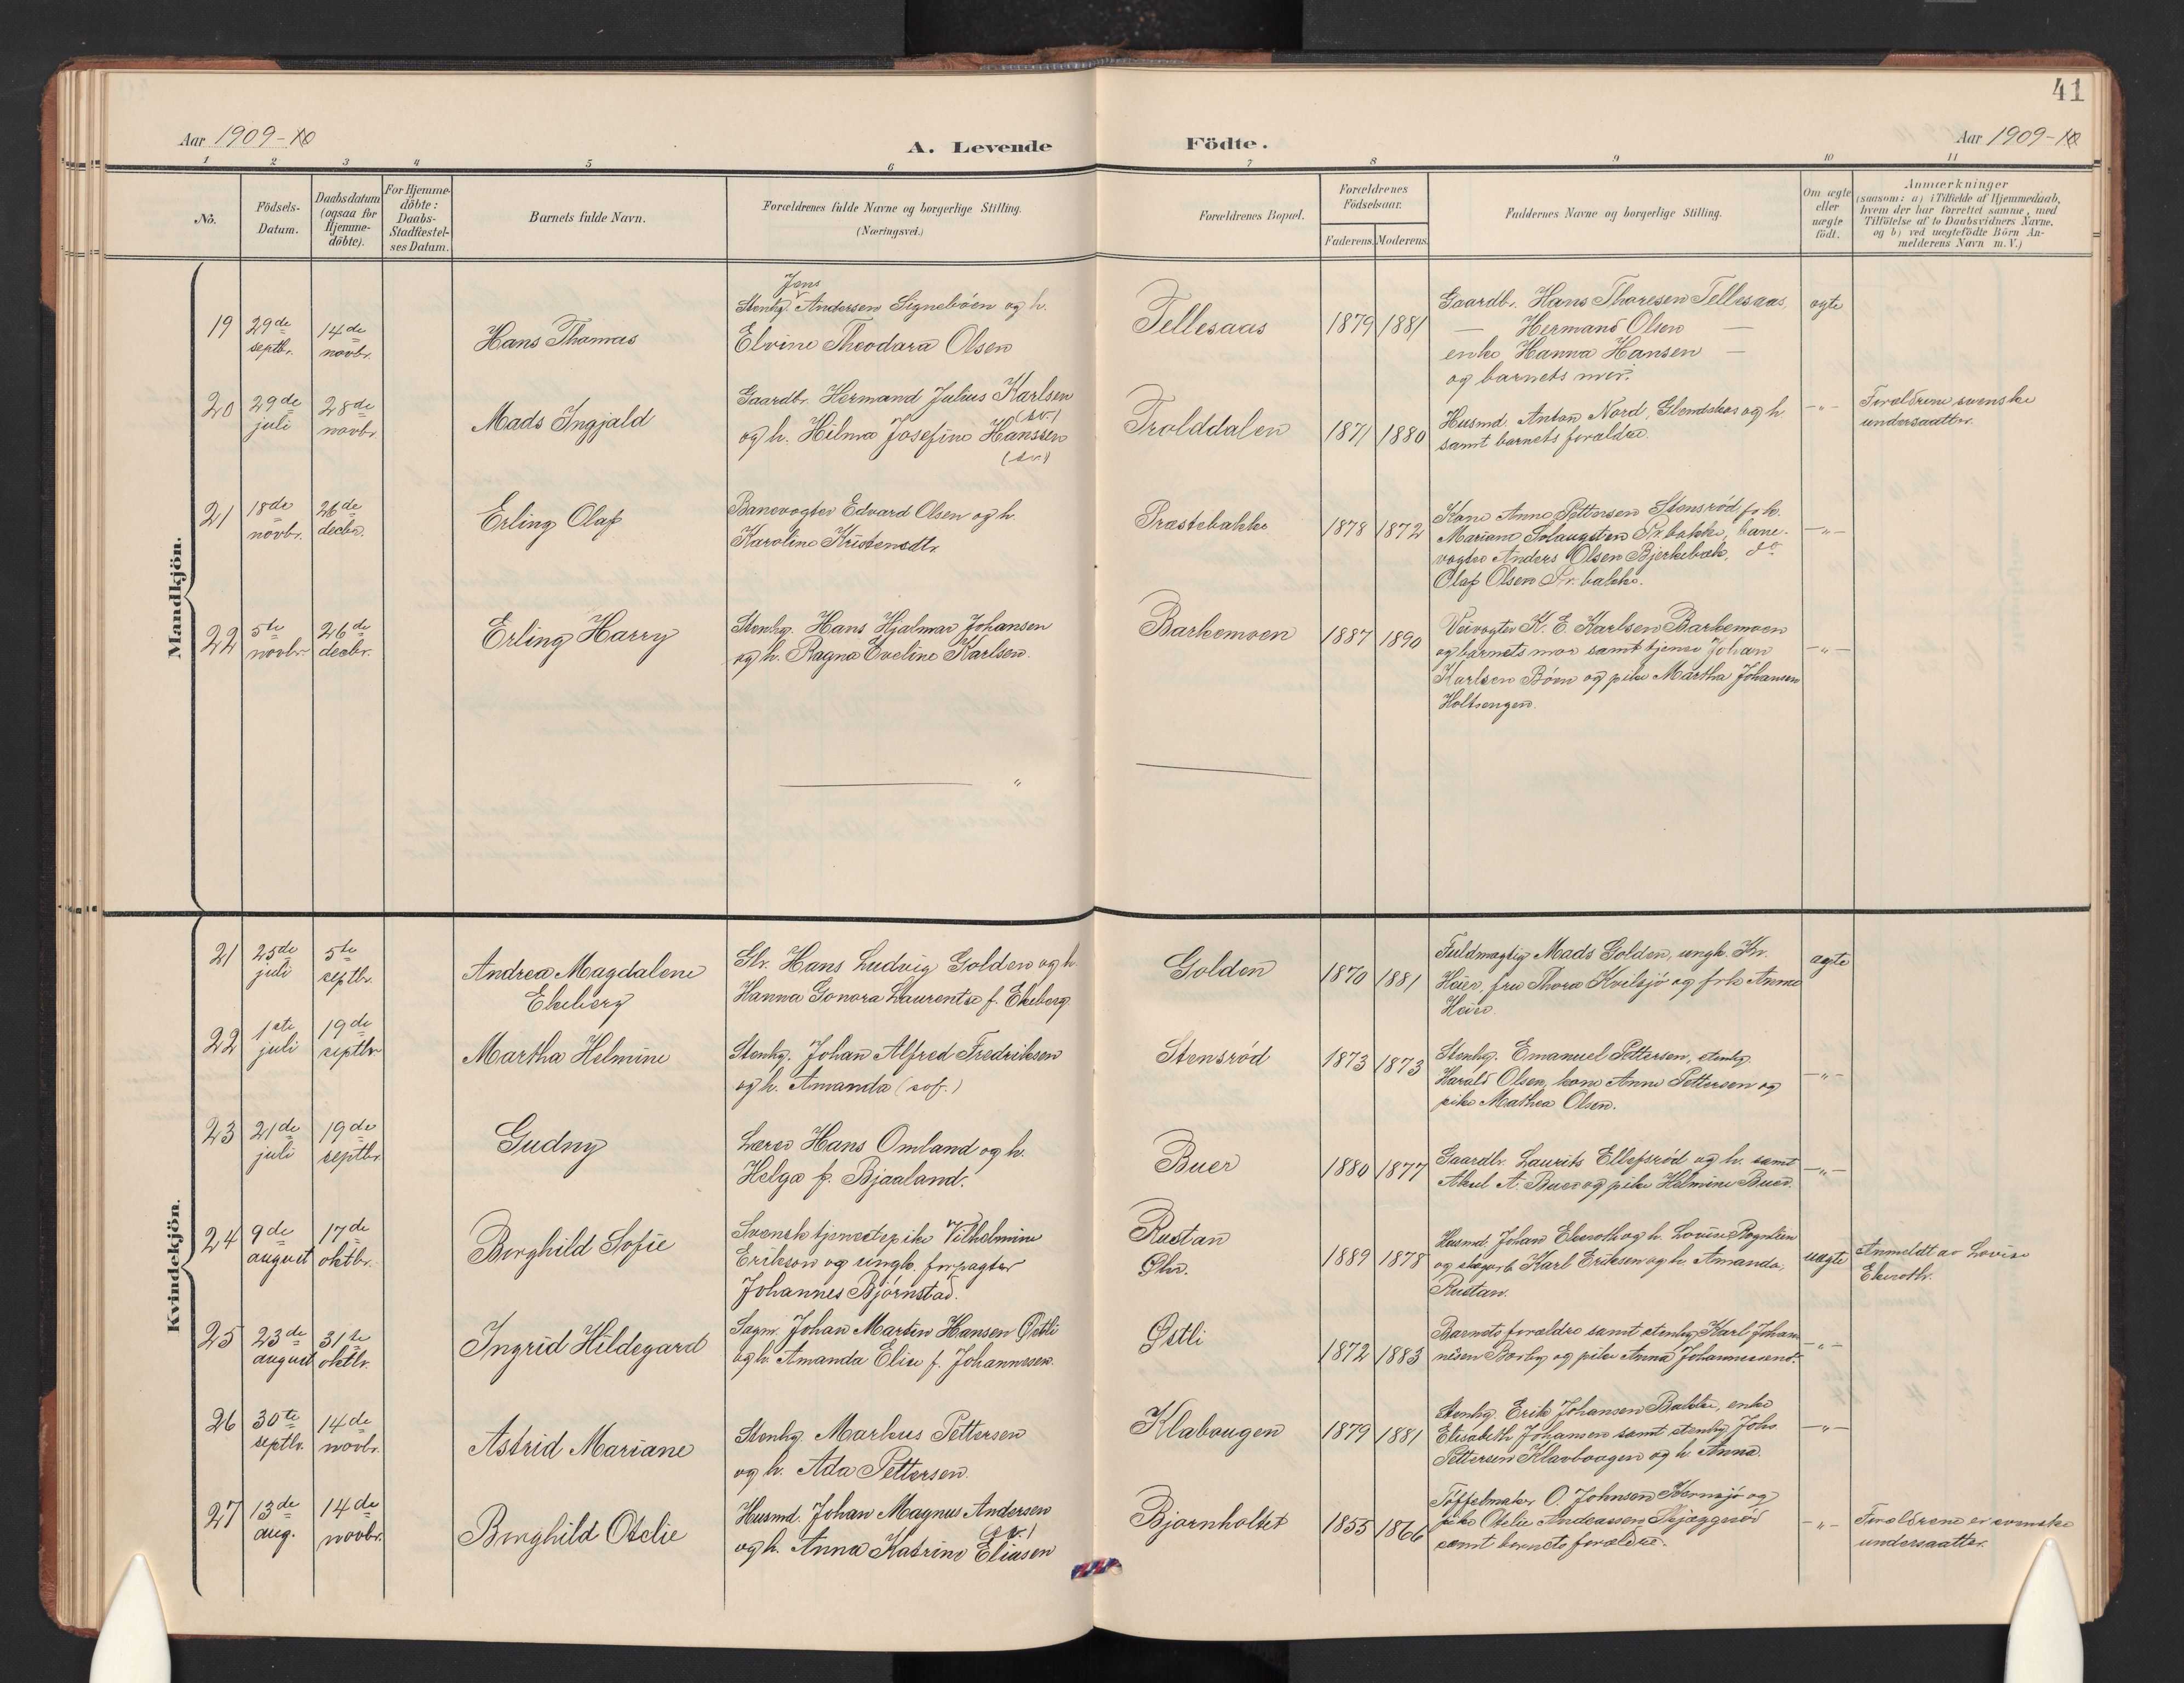 41
Aar 1909-10
A. Levende Födte.
Aar 1909-10
1 2 3 4 5 6 7 8 9 10 11
No.
Födsels-
Datum.
Daabsdatum
(ogsaa for
Hjemme-
döbte).
For Hjemme-
döbte:
Daabs-
Stadfæstel-
ses Datum.
Barnets fulde Navn.
Forældrenes fulde Navne og borgerlige Stilling.
(Næringsvei.)
Forældrenes Bopæl.
Forældrenes
Födselsaar.
Faderens. Moderens.
Faddernes Navne og borgerlige Stilling.
Om ægte
eller
uægte
födt.
Anmærkninger
(saasom: a) i Tilfælde af Hjemmedaab,
hvem der har forrettet samme, med
Tilföielse af to Daabsvidners Navne,
og b) ved uægtefödte Börn An-
melderens Navn m. V.)
Mandkjön.
19
29de
septbr.
14de
novbr.
Hans Thomas
Jens
Stenhg. Andersen Signebøen og h.
Elvine Theodora Olsen
Tellesaas
1879 1881
Gaardbr. Hans Thoresen Tellesaas,
— Hermand Olsen —
enke Hanna Hansen —
og barnets mor.
ægte
20
29de
juli
28de
novbr.
Mads Ingjald
Gaardbr. Hermand Julius Karlsen
(sv.)
og h. Hilma Josefine Hanssen
(sv.)
Trolddalen
1871 1880
Husmd. Anton Nord, Glendskas og h.
samt barnets forældre.
—"—
Forældrene svenske
undersaatter.
21
18de
novbr.
26de
decbr.
Erling Olaf
Banevogter Edvard Olsen og h.
Karoline Kristensdtr.
Præstebakke
1878 1872
Kone Anne Pettersen Stensrød, frk.
Mariane Solaugsten Pr. bakke, bane-
vogter Anders Olsen Bjerkebæk, do
Olaf Olsen Pr. bakke.
—"—
22
5te
novbr.
26de
decbr.
Erling Harry
Stenhg. Hans Hjalmar Johansen
og h. Ragna Eveline Karlsen.
Barkemoen
1887 1890
Veivogter K. E. Karlsen Barkemoen
og barnets mor samt tjener Johan
Karlsen Bøen og pike Martha Johansen
Holtsengen.
—"—
"
Kvindekjön.
21
25de
juli
5te
septbr.
Andrea Magdalene
Ekeberg
Gbr. Hans Ludvig Golden og h.
Hanna Gonora Laurentse f. Ekeberg
Golden
1870 1881
Fuldmægtig Mads Golden, ungk. Kr.
Høier, fru Thora Kvilesjø og frk. Anna
Høier.
ægte
22
1ste
juli
19de
septbr.
Martha Helmine
Stenhg. Johan Alfred Fredriksen
og h. Amanda (sof.)
Stensrød
1873 1873
Stenhg. Emanuel Pettersen, stenhg.
Harald Olsen, kone Anne Pettersen og
pike Mathea Olsen.
—"—
23
21de
juli
19de
septbr.
Gudny
Lærer Hans Omland og h.
Helga f. Bjaaland.
Buer
1880 1877
Gaardbr. Laurits Ellefsrød og h. samt
Aksel A. Buer og pike Helmine Buer.
—"—
24
9de
august
17de
oktbr.
Borghild Sofie
Svensk tjenestepike Vilhelmine
Erikson og ungk. forpagter
Johannes Bjørnstad.
Rustan
Øhr.
1889 1878
Husmd. Johan Ekeroth og h. Lovise Rognlien
og skogarb. Karl Eriksen og h. Amanda,
Rustan.
uægte
Anmeldt av Lovise
Ekeroth.
25
23de
august
31te
oktbr.
Ingrid Hildegard
Sagm. Johan Martin Hansen Østli
og h. Amanda Elin f. Johannesen.
Østli
1872 1883
Barnets forældre samt stenhg. Karl Johan-
nesen Borby og pike Anna Johannesend.
—"—
26
30te
septbr.
14de
novbr.
Astrid Mariane
Stenhg. Markus Pettersen
og h. Ada Pettersen.
Klabaugen
1879 1881
Stenhg. Erik Johansen Bakke, enke
Elisabeth Johansen samt stenhg. Johs.
Pettersen Klavbaugen og h. Anna.
—"—
27
13de
aug.
14de
novbr.
Borghild Otelie
Husmd. Johan Magnus Andersen
(sv.)
og h. Anna Katrine Eliasen
Bjørnholtet
1855 1866
Tøffelmaker O. Johnsen Kornsjø og
pike Otelie Andreassen Skjæggerød
samt barnets forældre.
—"—
Forældrene er svenske
undersaatter.